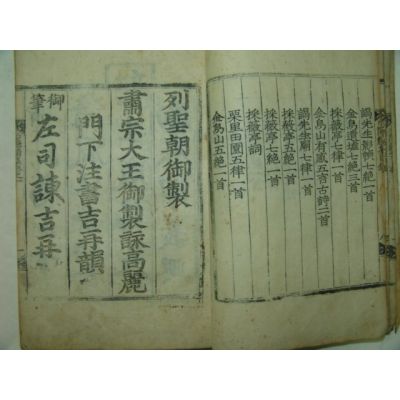 謁先生影幀七絶一首
金烏遺墟七絶三首
採薇亭七律一首
金烏山有感五言古詩二首
謁先生廟七律一首
採薇亭五絶一首
採薇亭七絶一首
採薇亭詞
栗里田園五律一首
金烏山五絶一首
列聖朝御製
肅宗大王御製詠高麗
門下注書吉再韻
御筆
左司諫吉再